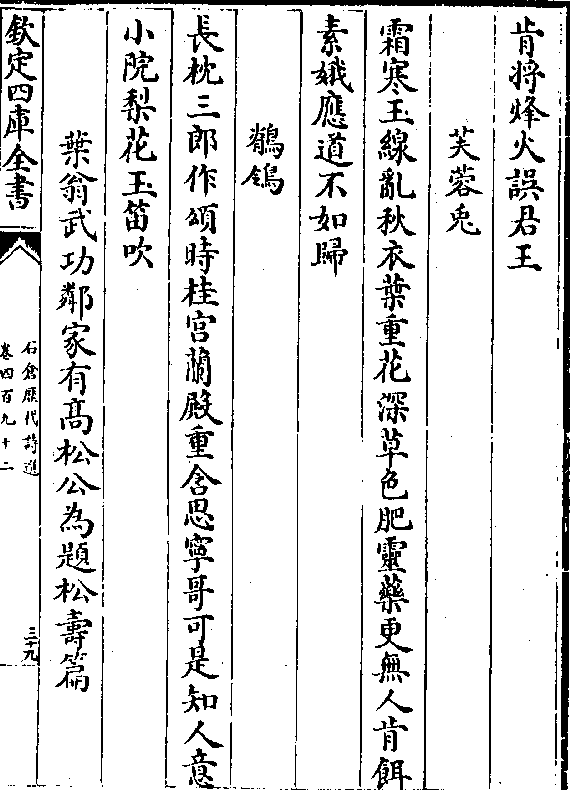 肯將烽火誤君王
芙蓉兎
霜寒玉線亂秋衣葉重花深草色肥靈藥更無人肯餌
素娥應道不如歸
鶺鴒
長枕三郎作頌時桂宮蘭殿重含思寧哥可是知人意
小院梨花玉笛吹
葉翁武功鄰家有髙松公為題松壽篇
欽定四庫全書
石倉歷代詩選
卷四百九十二
三十九